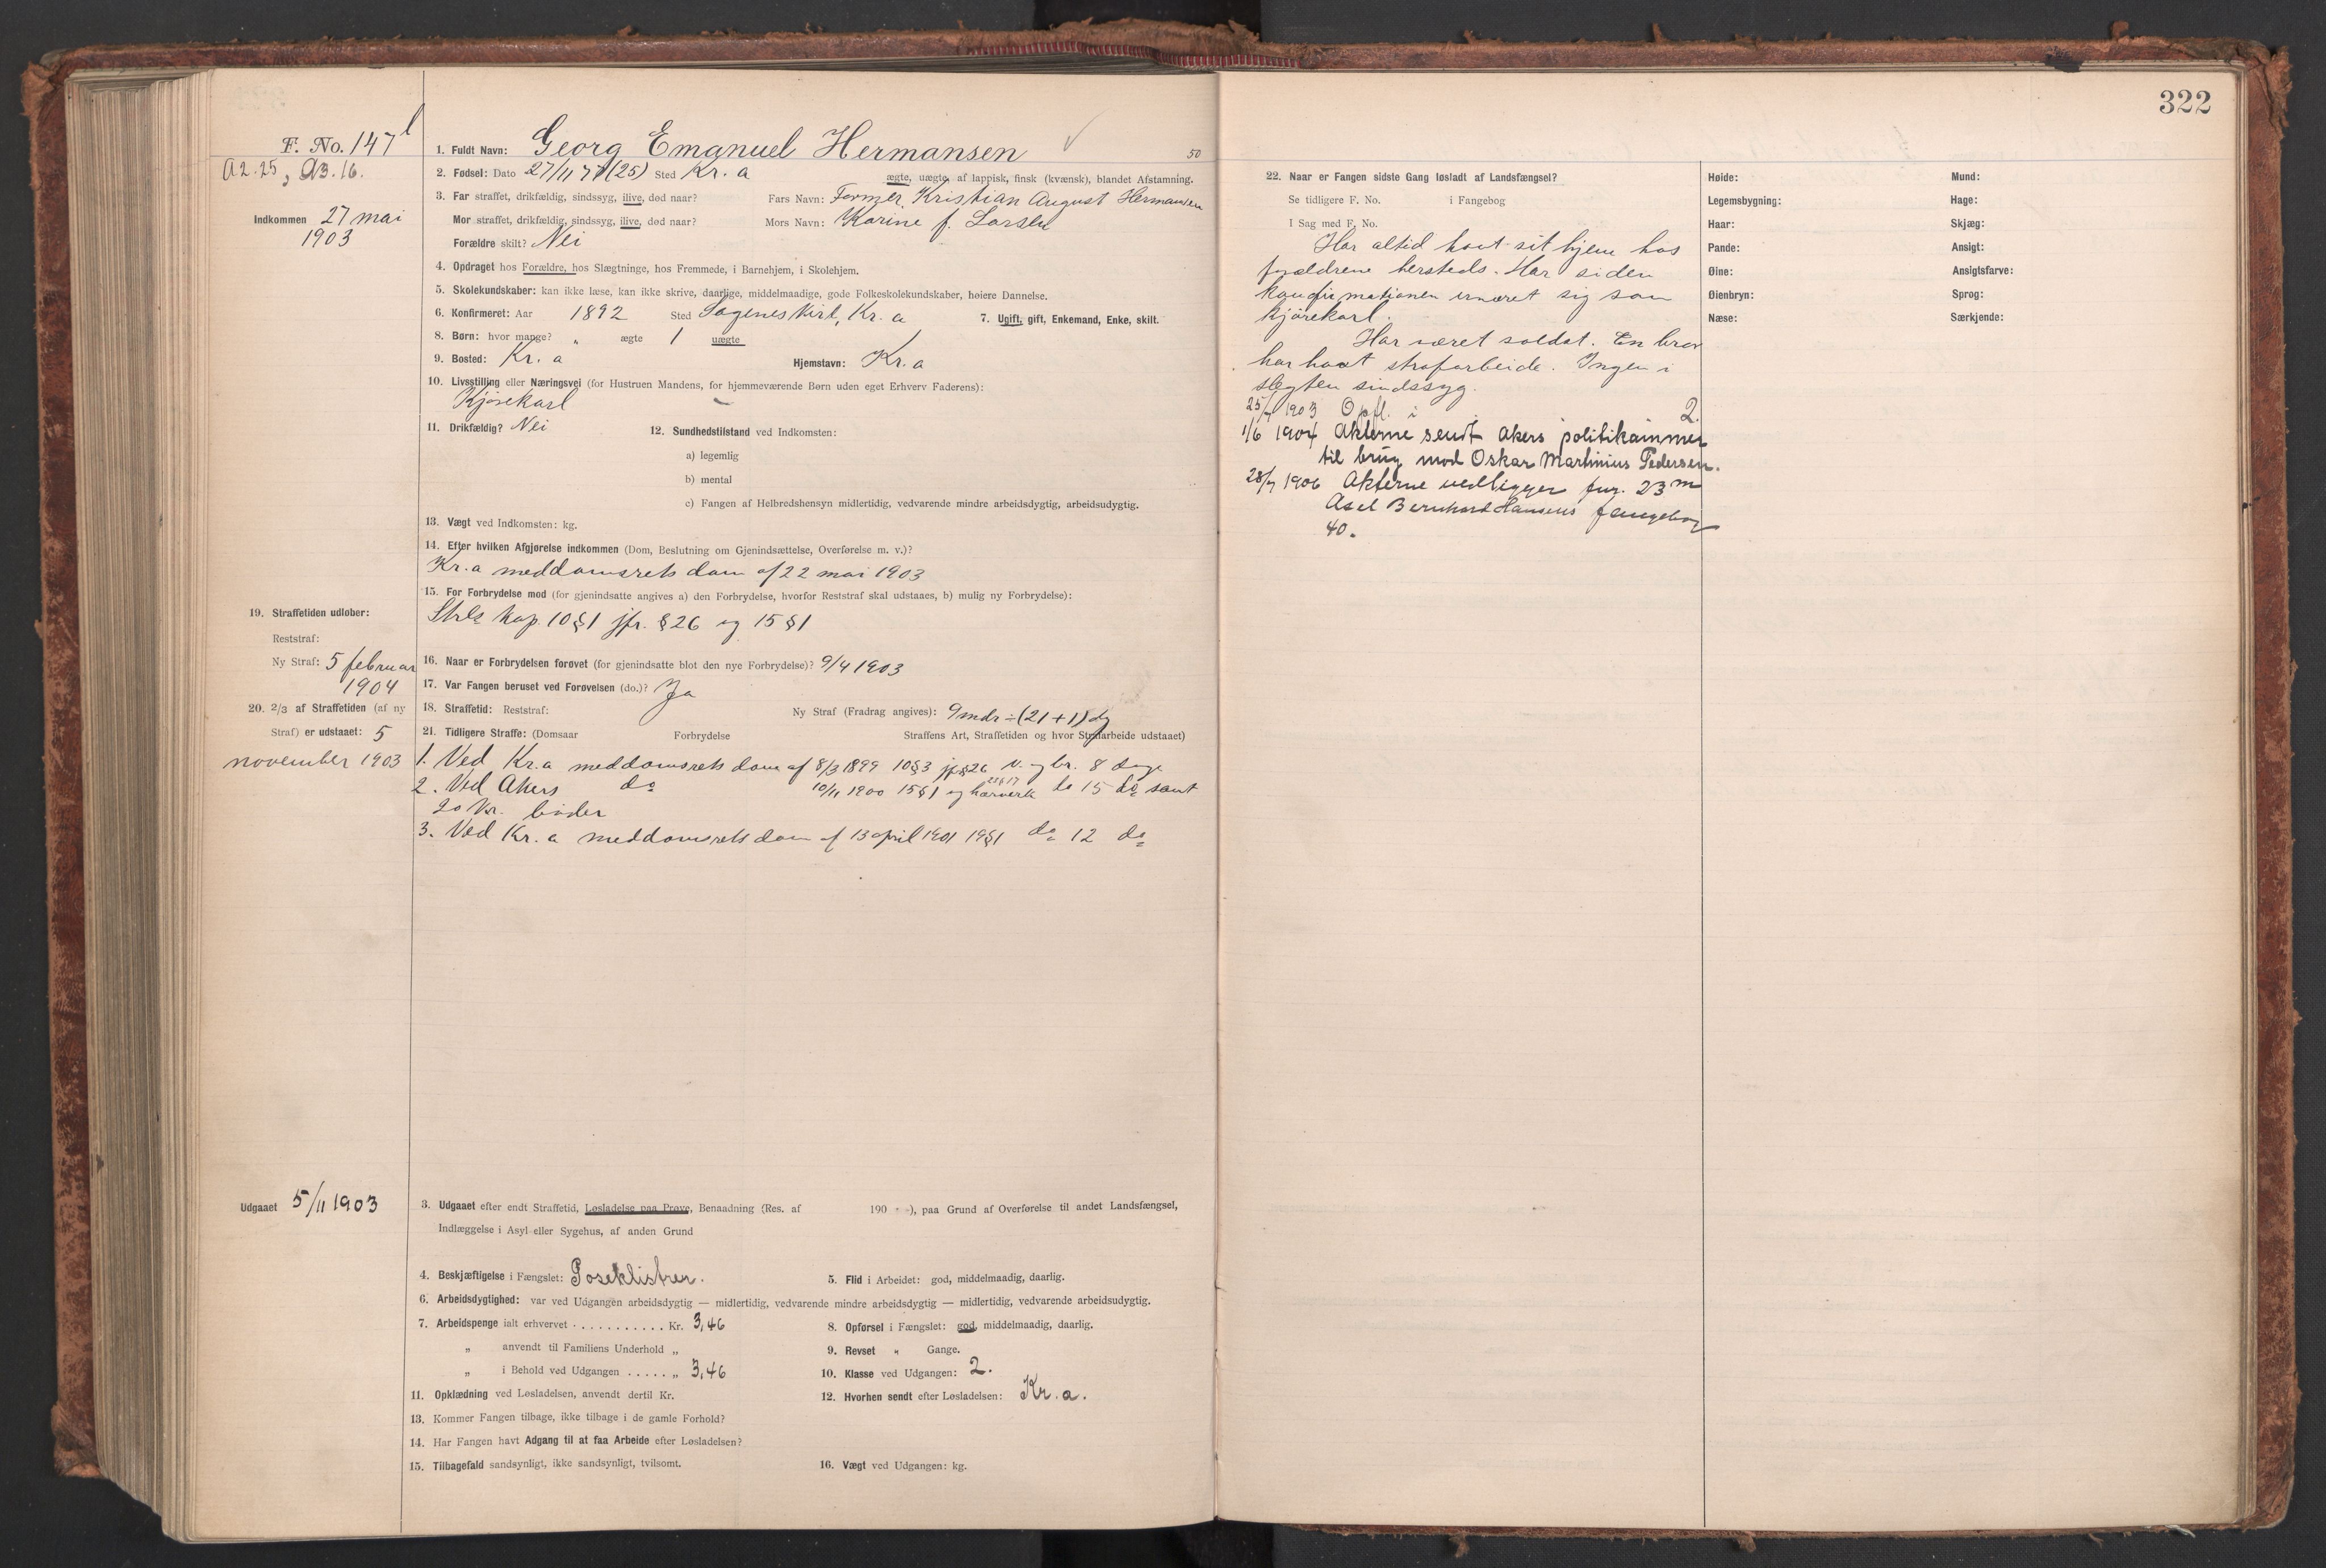 322
F. No. 147 l
A2.25, A3.16.
Indkommen 27 mai
1903
1. Fuldt Navn: Georg Emanuel Hermansen
50
2. Fødsel: Dato 27/11 77 (25) Sted Kr. a
ægte, uægte, af lappisk, finsk (kvænsk), blandet Afstamning.
3. Far straffet, drikfældig, sindssyg, ilive, død naar? Fars Navn: Former Kristian August Hermansen
Mor straffet, drikfældig, sindssyg, ilive, død naar? Mors Navn: Karine f. Larsen
Forældre skilt? Nei
4. Opdraget hos Forældre, hos Slægtninge, hos Fremmede, i Barnehjem, i Skolehjem.
5. Skolekundskaber: kan ikke læse, kan ikke skrive, daarlige, middelmaadige, gode Folkeskolekundskaber, høiere Dannelse.
6. Konfirmeret: Aar 1892 Sted Sagenes Kirk, Kr. a 7. Ugift, gift, Enkemand, Enke, skilt.
8. Børn: hvor mange? „ ægte 1 uægte
9. Bosted: Kr. a Hjemstavn: Kr. a
10. Livsstilling eller Næringsvei (for Hustruen Mandens, for hjemmeværende Børn uden eget Erhverv Faderens):
Kjørekarl
11. Drikfældig? Nei 12. Sundhedstilstand ved Indkomsten:
a) legemlig
b) mental
c) Fangen af Helbredshensyn midlertidig, vedvarende mindre arbeidsdygtig, arbeidsudygtig.
13. Vægt ved Indkomsten: kg.
14. Efter hvilken Afgjørelse indkommen (Dom, Beslutning om Gjenindsættelse, Overførelse m. v.)?
Kr. a meddomsrets dom af 22 mai 1903
15. For Forbrydelse mod (for gjenindsatte angives a) den Forbrydelse, hvorfor Reststraf skal udstaaes, b) mulig ny Forbrydelse):
Strls kap. 10 § 1 jfr. § 26 og 15 § 1
16. Naar er Forbrydelsen forøvet (for gjenindsatte blot den nye Forbrydelse)? 9/4 1903
17. Var Fangen beruset ved Forøvelsen (do.)? Ja
18. Straffetid: Reststraf: Ny Straf (Fradrag angives): 9 mdr ÷ (21 + 1) dg
19. Straffetiden udløber:
Reststraf:
Ny Straf: 5 februar
1904
20. 2/3 af Straffetiden (af ny
Straf) er udstaaet: 5
november 1903
21. Tidligere Straffe: (Domsaar Forbrydelse Straffens Art, Straffetiden og hvor Strafarbeide udstaaet)
1. Ved Kr. a meddomsrets dom af 8/3 1899 10 § 3 jf § 26 v. og br. 8 dage
2. Ved Akers do 10/11 1900 15 § 1 og hærverk do 15 do samt
20 kr. bøder
3. Ved Kr. a meddomsrets dom af 13 april 1901 19 § 1 do 12 do
Udgaaet 5/11 1903
3. Udgaaet efter endt Straffetid, Løsladelse paa Prøve, Benaadning (Res. af 190 ), paa Grund af Overførelse til andet Landsfængsel,
Indlæggelse i Asyl eller Sygehus, af anden Grund
4. Beskjæftigelse i Fængslet: Poseklistrer. 5. Flid i Arbeidet: god, middelmaadig, daarlig.
6. Arbeidsdygtighed: var ved Udgangen arbeidsdygtig — midlertidig, vedvarende mindre arbeidsdygtig — midlertidig, vedvarende arbeidsudygtig.
7. Arbeidspenge ialt erhvervet . . . . . . . . . . . Kr. 3,46 8. Opførsel i Fængslet: god, middelmaadig, daarlig.
„ anvendt til Familiens Underhold „ 9. Revset „ Gange.
„ i Behold ved Udgangen . . . . . „ 3,46 10. Klasse ved Udgangen: 2.
11. Opklædning ved Løsladelsen, anvendt dertil Kr. 12. Hvorhen sendt efter Løsladelsen: Kr. a.
13. Kommer Fangen tilbage, ikke tilbage i de gamle Forhold?
14. Har Fangen havt Adgang til at faa Arbeide efter Løsladelsen?
15. Tilbagefald sandsynligt, ikke sandsynligt, tvilsomt. 16. Vægt ved Udgangen: kg.
22. Naar er Fangen sidste Gang løsladt af Landsfængsel?
Se tidligere F. No. i Fangebog
I Sag med F. No.
Har altid havt sit hjem hos
forældrene hersteds. Har siden
konfirmationen ernæret sig som
kjørekarl.
Har været soldat. En bror
har havt strafarbeide. Ingen i
slegten sindssyg.
25/7 1903 Opfl. i 2.
1/6 1904 Akterne sendt Akers politikammer
til brug mod Oskar Martinius Pedersen.
28/7 1906 Akterne vedligger fng. 23 m
Axel Bernhard Hansens fangebog
40.
Høide: Mund:
Legemsbygning: Hage:
Haar: Skjæg:
Pande: Ansigt:
Øine: Ansigtsfarve:
Øienbryn: Sprog:
Næse: Særkjende: